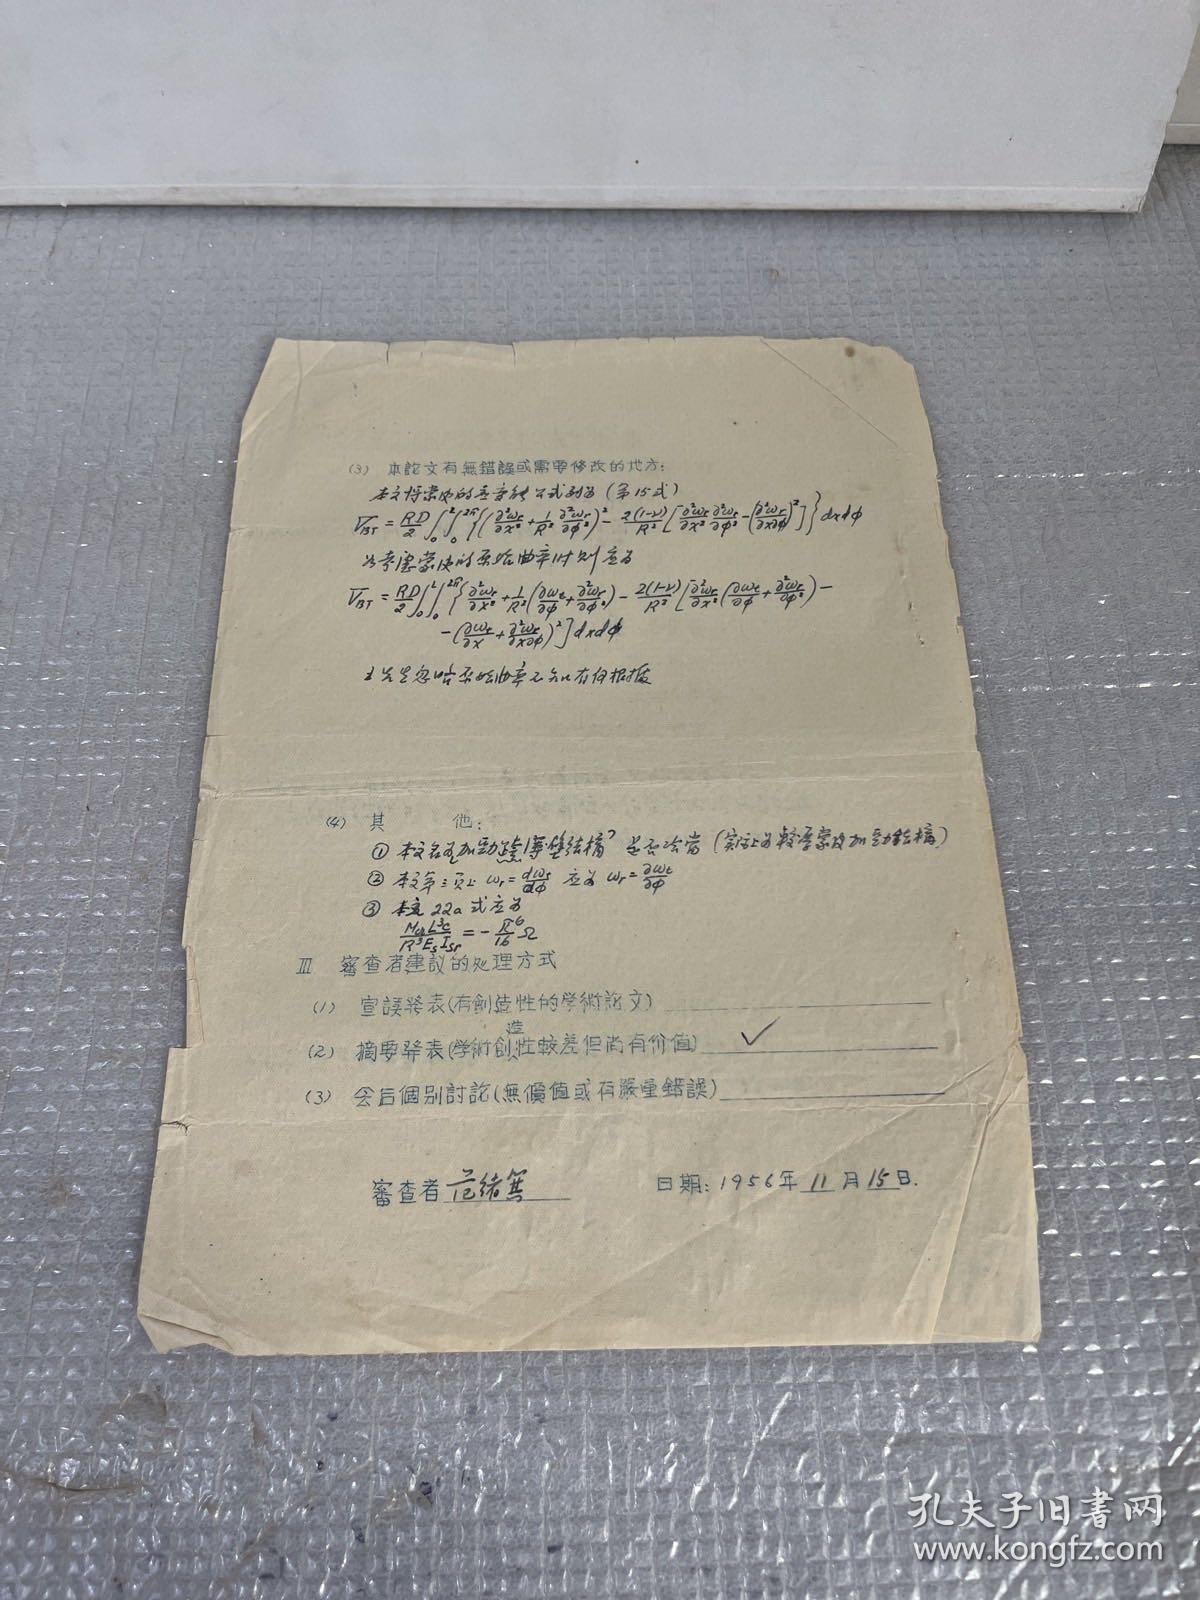 (3) 本論文有無錯誤或需要修改的地方:
本文將蒙皮的 公式列为 (第15式)
V_BT = RD/2 ∫₀ᴸ ∫₀²ᴨ {(∂²ωr/∂x² + 1/R² ∂²ωr/∂φ²)² - 2(1-ν)/R² [∂²ωr/∂x² ∂²ωr/∂φ² - (∂²ωr/∂x∂φ)²]} dxdφ
如考慮蒙皮的原始曲率时则应为
V_BT = RD/2 ∫₀ᴸ ∫₀²ᴨ {∂²ωr/∂x² + 1/R² (∂ωt/∂φ + ∂²ωr/∂φ²) - 2(1-ν)/R² [∂²ωr/∂x² (∂ωt/∂φ + ∂²ωr/∂φ²) -
- (∂ωt/∂x + ∂²ωr/∂x∂φ)²] dxdφ
忽略原始曲率不知有何根據
(4) 其 他:
① 本文名为加勁 薄壁結構? 是否恰當 (实际上为較厚蒙皮加勁結構)
② 本文第三页上 ωr = dωt/dφ 应为 ωr = ∂ωt/∂φ
③ 本文 22a 式应为
McrL³c/R³EsIsr = - π⁶/16 Ω
III 審查者建議的处理方式
(1) 宣讀發表(有創造性的学術論文)
(2) 摘要發表(学術創造性較差但尚有价值) ✓
(3) 会后個別討論(無價值或有嚴重錯誤)
審查者 范緒箕 日期: 1956年 11 月 15 日.
孔夫子旧書网
www.kongfz.com